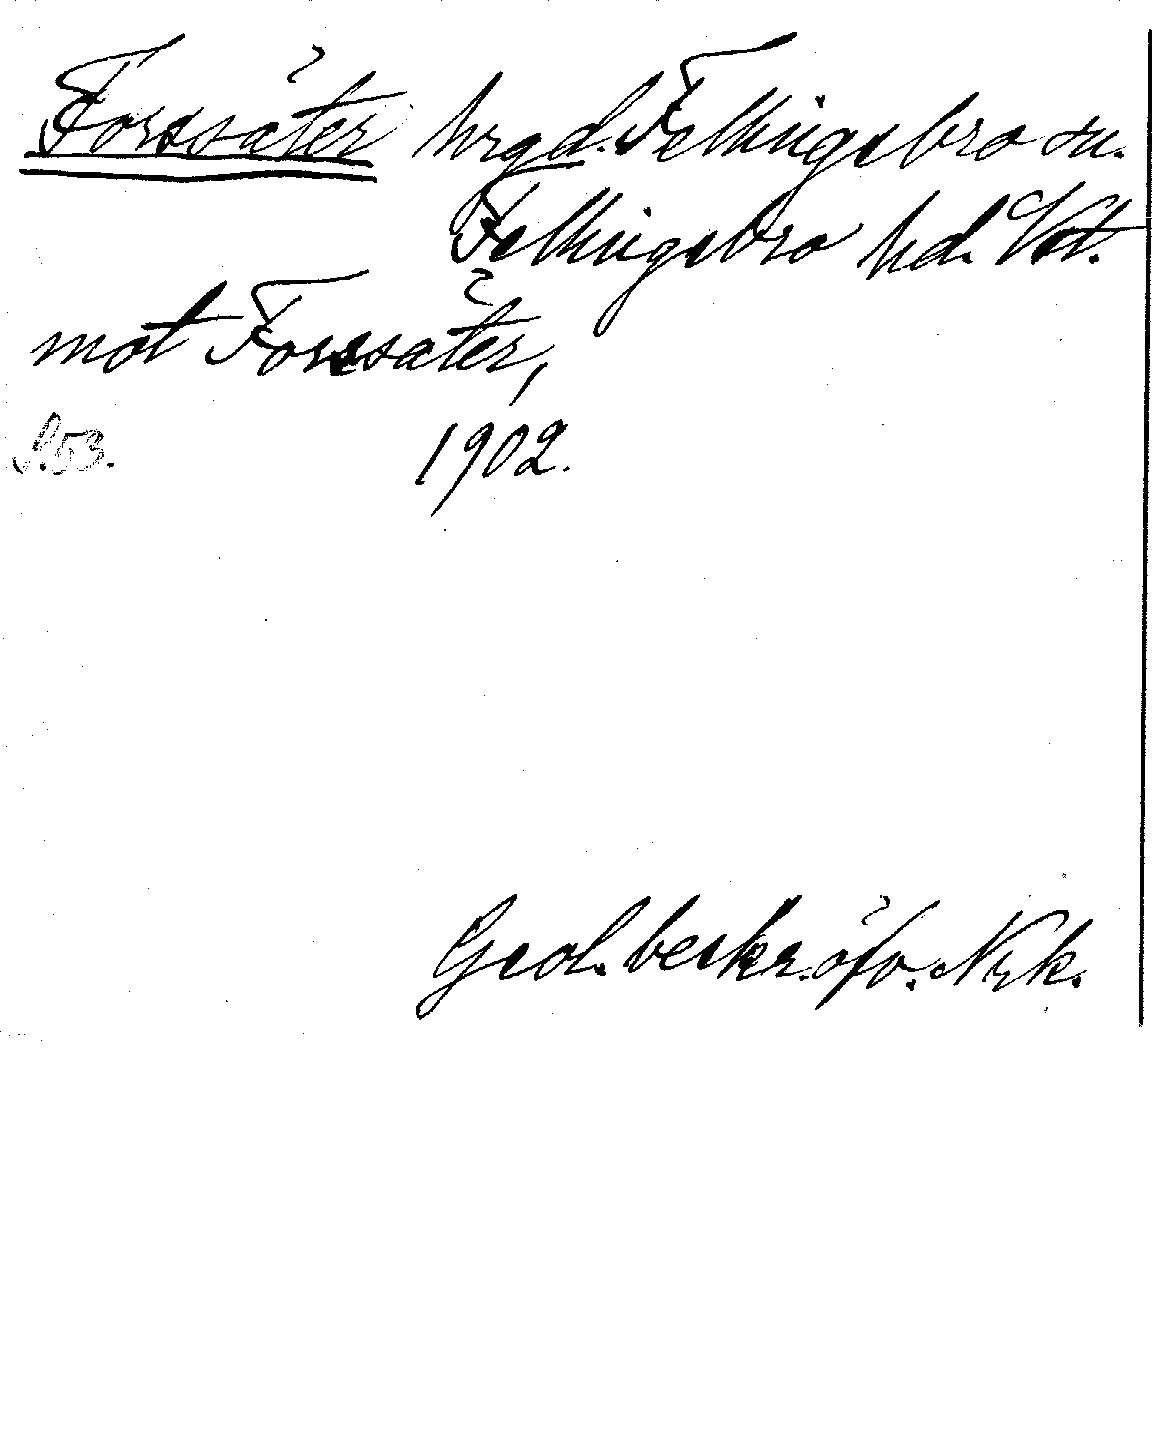 Forssäter hrgd. Fellingsbro sn.
Fellingsbro hd. Vstm.
mot Forssäter,
S.53. 1902.
Geol. beskr. öfv. Nrk.